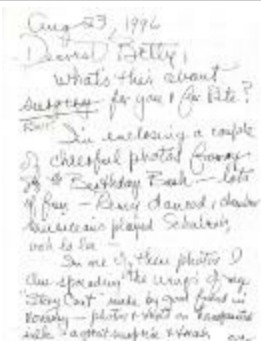 Aug 23, 1996
Dearest Betty,
What's this about
surgery for you & for Pete?
I'm enclosing a couple
of cheerful photos from
Birthday Bash – lots
of fun – danced, chamber
musicians played Schubert,
ooh la la
In one of these photos I
am spreading the wings of my
"Story Coat" made by good friend in
– photos & text on
silk – a great surprise &